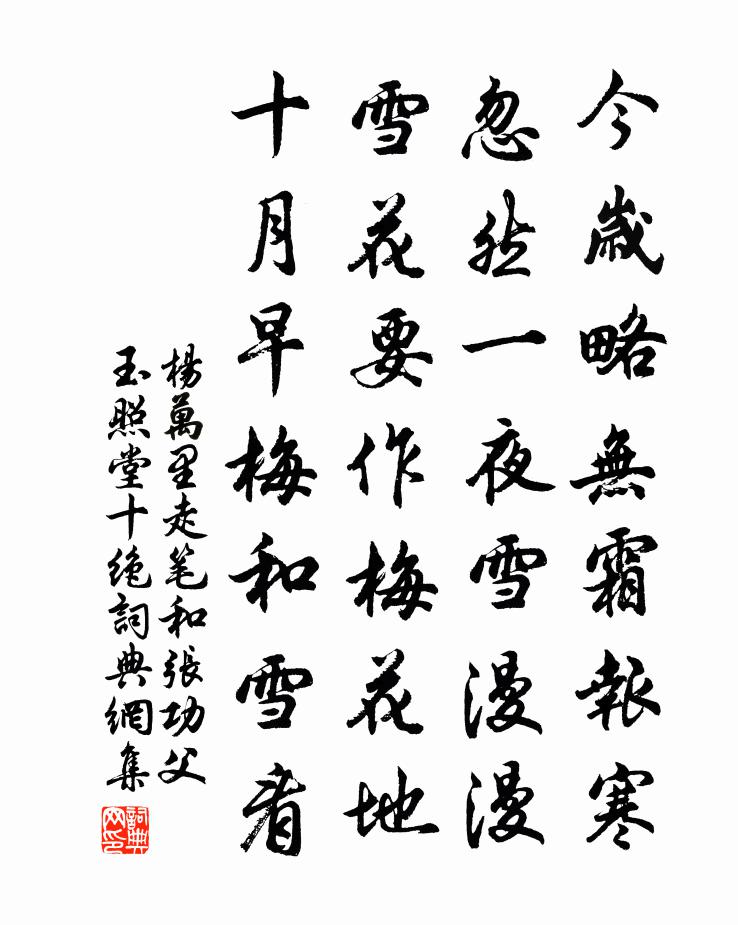 今歲略無霜報寒
忽然一夜雪漫漫
雪花要作梅花地
十月早梅和雪看
楊萬里走笔和張功父
玉照堂十絶詞典網集
詞典网印